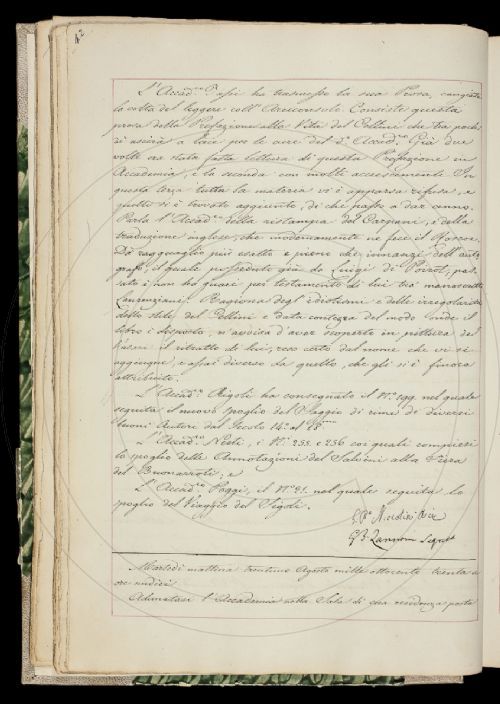 42
L'Accad.co Tassi ha trasmesso la sua Prosa, cangiata
la volta del leggere coll'Arciconsole. Consiste questa
prosa della Prefazione alla Vita del Cellini che tra pochi
dì uscirà a luce per le cure del d.o Accad.co Già due
volte era stata fatta lettura di questa Prefazione in
Accademia, e la seconda con molti accrescimenti. In
questa terza tutta la materia vi è apparsa rifusa, e
molto vi s'è trovato aggiunto, di che passo a dar cenno.
Parla l'Accad.co della ristampa del Carpani, e della
traduzione inglese, che modernamente ne fece il Roscoe.
Dà ragguaglio più esatto e pieno che innanzi dell'auto
grafo, il quale posseduto già da Luigi de Poirot, pas
sato è non ha guari per testamento di lui tra' manoscritti
Laurenziani. Ragiona degl'idiotismi e delle irregolarità
dello stile del Cellini e data contezza del modo onde il
libro è disposto, n'avvisa d'aver scoperto in pittura del
Vasari il ritratto di lui, reso certo dal nome che vi si
aggiunge, e assai diverso da quello, che gli si è finora
attribuito.
L'Accad.co Rigoli ha consegnato il N.o 199 nel quale
seguita il nuovo spoglio del Saggio di rime di diversi
buoni Autori dal Secolo 14.o al 18.mo
L'Accad.co Nesti, i N.i 255. e 256 coi quali compiesi
lo spoglio delle Annotazioni del Salvini alla Fiera
del Buonarroti; e
L'Accad.co Poggi, il N.o 21. nel quale seguita lo
spoglio del Viaggio del Sigoli.
G. B. Niccolini
G. B. Zannoni Segret.
Martedì mattina trentuno Agosto mille ottocento trenta a
ore undici
Adunatasi l'Accademia nella Sala di sua residenza posta